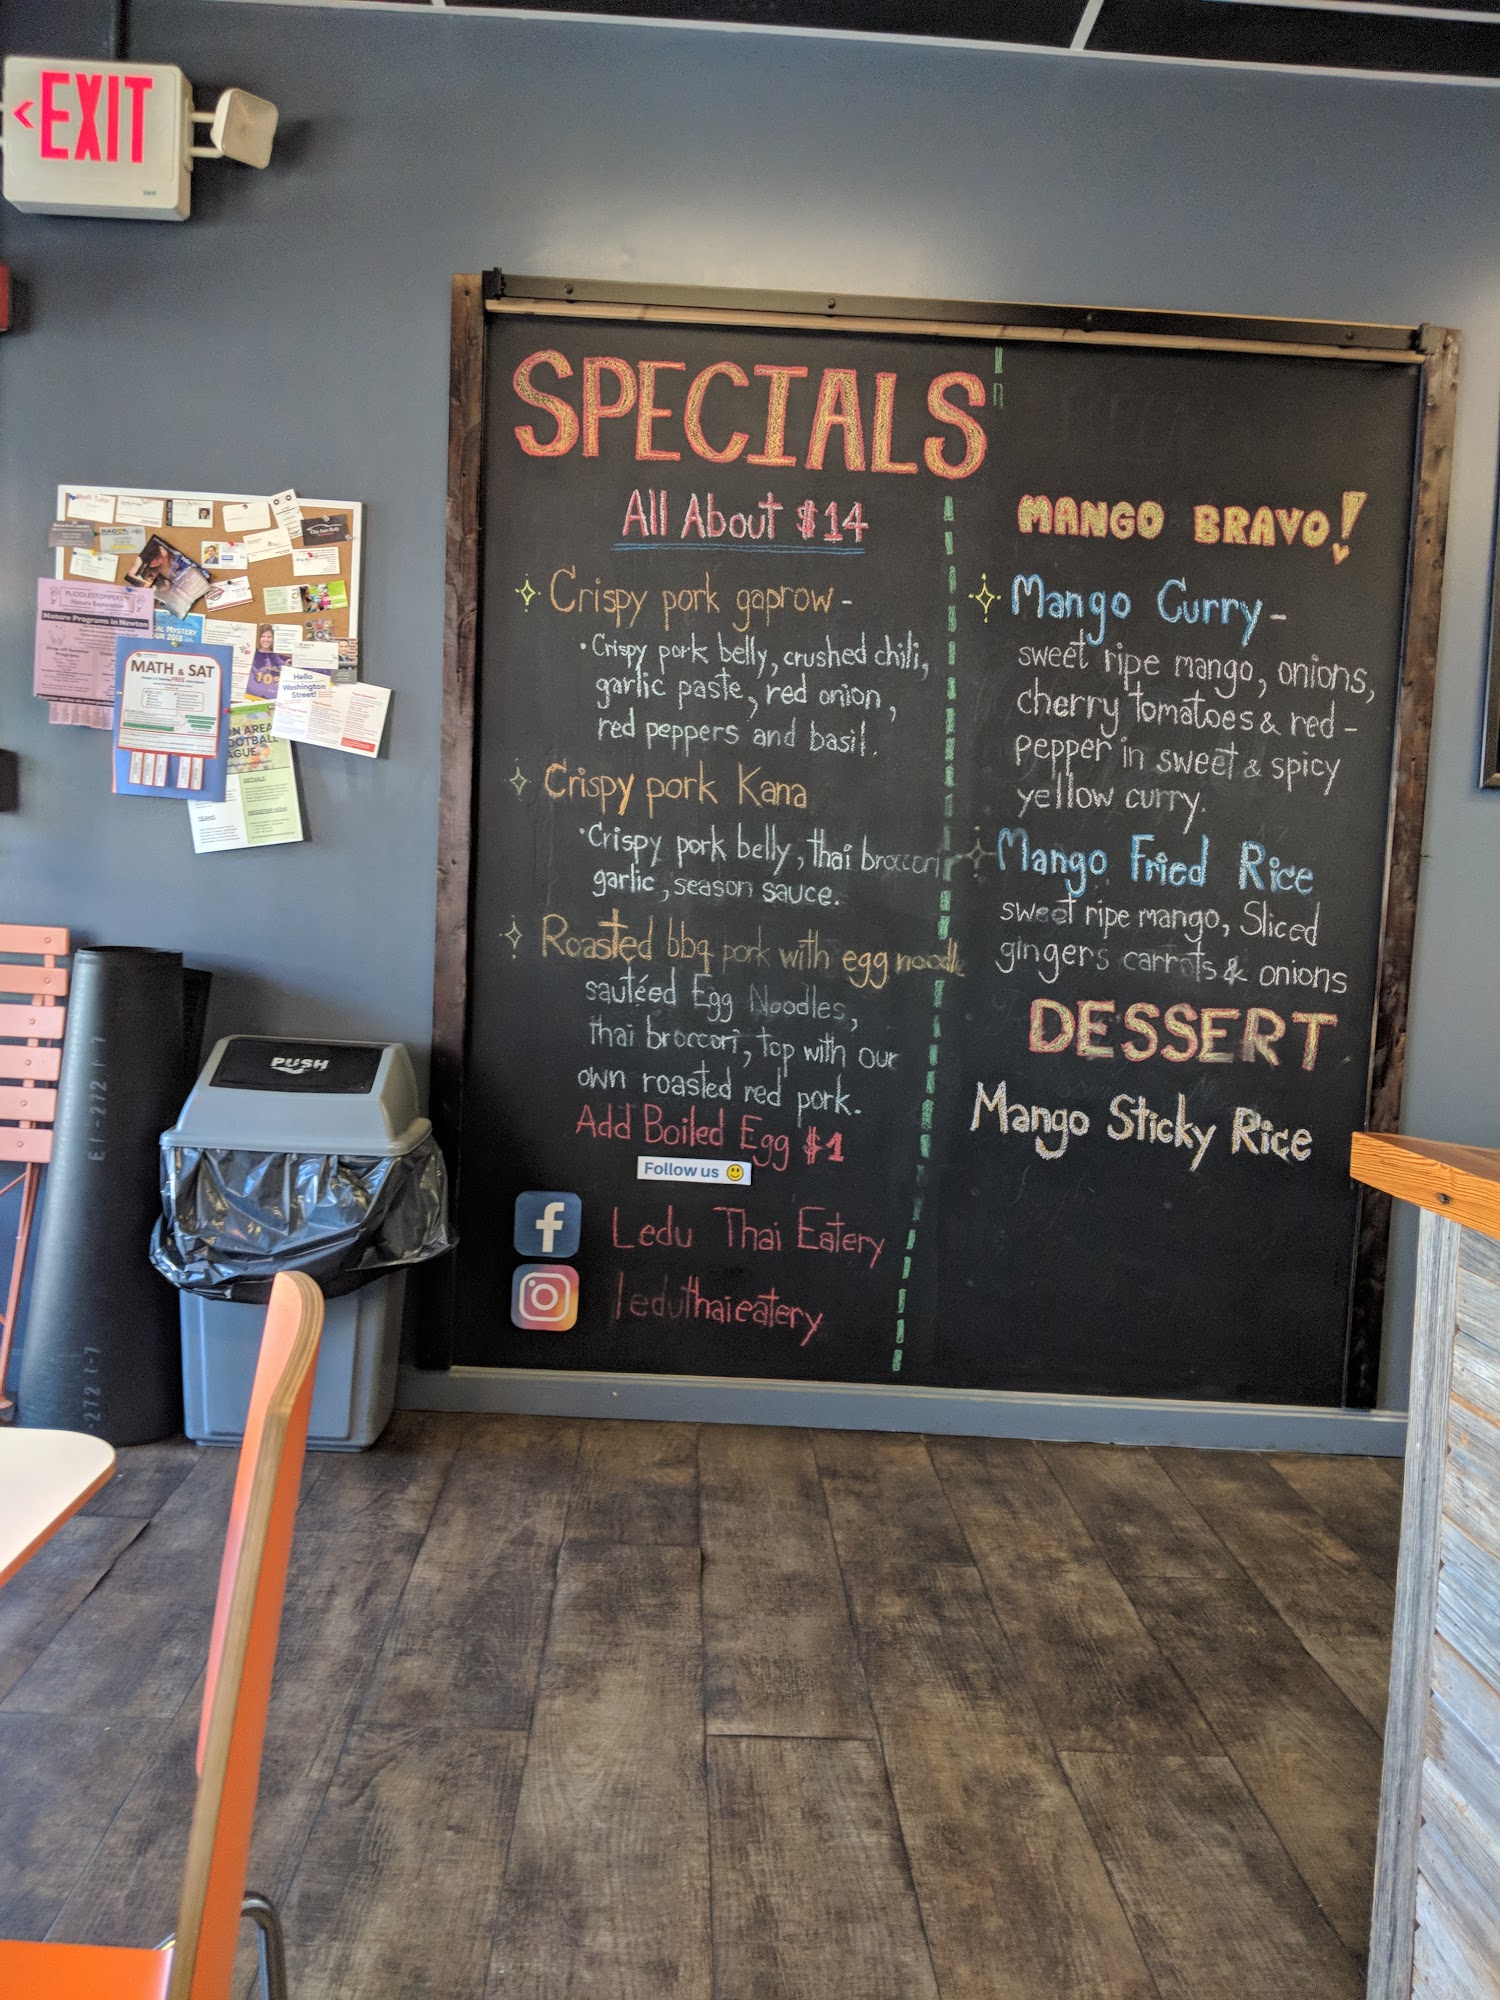 EXIT
SPECIALS
All About $14
Crispy pork gaprow -
• Crispy pork belly, crushed chili,
garlic paste, red onion,
red peppers and basil.
Crispy pork Kana
• Crispy pork belly, thai broccori
garlic, season sauce.
Roasted bbq pork with egg noodle
sautéed Egg Noodles,
thai broccori, top with our
own roasted red pork.
Add Boiled Egg $1
Follow us
Ledu Thai Eatery
leduthaieatery
MANGO BRAVO!
Mango Curry -
sweet ripe mango, onions,
cherry tomatoes & red -
pepper in sweet & spicy
yellow curry.
Mango Fried Rice
sweet ripe mango, Sliced
gingers carrots & onions
DESSERT
Mango Sticky Rice
Math Tutor
PUDDLESTOMPERS
Nature Exploration
Nature Programs in Newton
MATH & SAT
Hello
Washington
Street!
ON AREA
FOOTBALL
DETAILS
REGISTER NOW!
TEAMS
PUSH